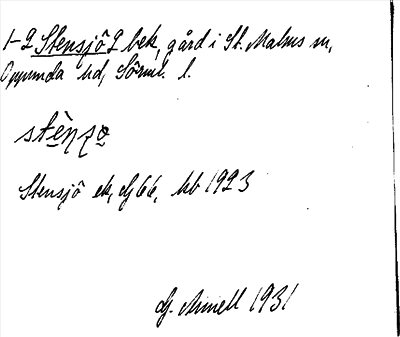 1-2 Stensjö 2 bek, gård i St. Malms sn,
Oppunda hd, Sörml. l.
stènʒo
Stensjö ek, dj 66, hb 1923
G. Ainell 1931